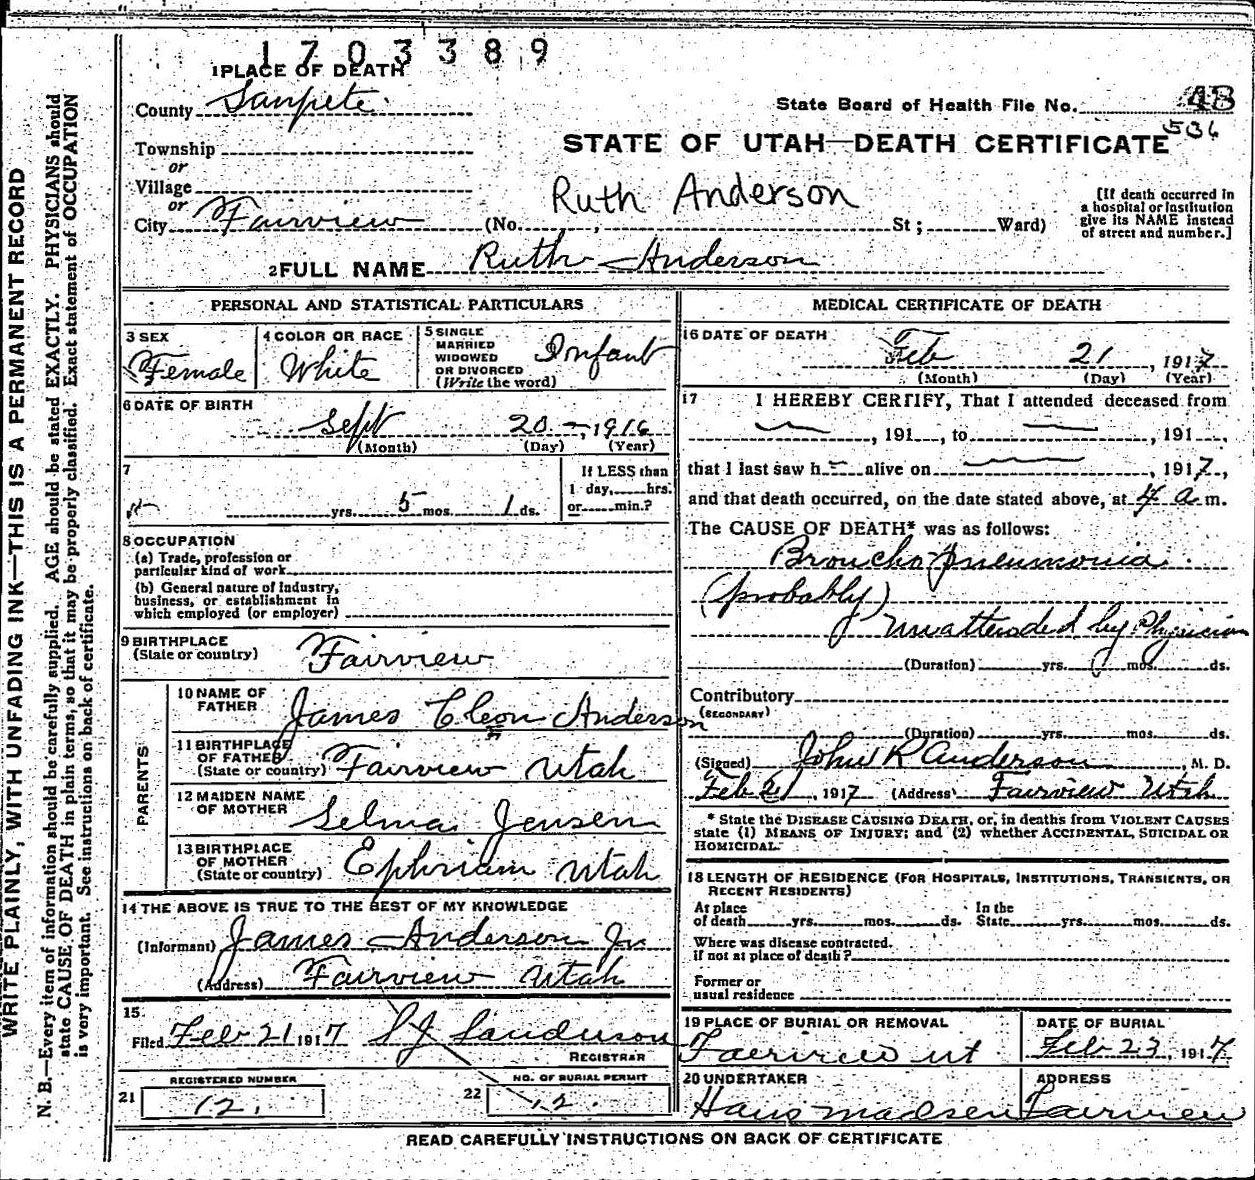 1703389
1 PLACE OF DEATH
County Sanpete
State Board of Health File No. 48
536
STATE OF UTAH—DEATH CERTIFICATE
Township
or
Village
or
City Fairview (No. , St ; Ward)
Ruth Anderson
[If death occurred in
a hospital or institution
give its NAME instead
of street and number.]
2 FULL NAME Ruth Anderson
PERSONAL AND STATISTICAL PARTICULARS
3 SEX
Female
4 COLOR OR RACE
White
5 SINGLE
MARRIED
WIDOWED
OR DIVORCED
(Write the word)
Infant
6 DATE OF BIRTH
Sept 20 -, 1916
(Month) (Day) (Year)
7
yrs. 5 mos. 1 ds.
If LESS than
1 day, hrs.
or min.?
8 OCCUPATION
(a) Trade, profession or
particular kind of work
(b) General nature of industry,
business, or establishment in
which employed (or employer)
9 BIRTHPLACE
(State or country) Fairview
PARENTS
10 NAME OF
FATHER James Cleon Anderson
11 BIRTHPLACE
OF FATHER
(State or country) Fairview Utah
12 MAIDEN NAME
OF MOTHER Selma Jensen
13 BIRTHPLACE
OF MOTHER
(State or country) Ephriam Utah
14 THE ABOVE IS TRUE TO THE BEST OF MY KNOWLEDGE
(Informant) James Anderson Jr
(Address) Fairview Utah
15.
Filed Feb 21 1917 S J Sanderson
REGISTRAR
REGISTERED NUMBER
21 12.
NO. OF BURIAL PERMIT
22 12.
MEDICAL CERTIFICATE OF DEATH
16 DATE OF DEATH
Feb 21, 1917
(Month) (Day) (Year)
17 I HEREBY CERTIFY, That I attended deceased from
— , 191 , to — , 191 ,
that I last saw h— alive on — , 1917,
and that death occurred, on the date stated above, at 4 a m.
The CAUSE OF DEATH* was as follows:
Broncho-pneumonia
(probably)
Unattended by Physician
(Duration) yrs. mos. ds.
Contributory
(SECONDARY)
(Duration) yrs. mos. ds.
(Signed) John R Anderson, M. D.
Feb 21, 1917 (Address) Fairview Utah
* State the DISEASE CAUSING DEATH, or, in deaths from VIOLENT CAUSES
state (1) MEANS OF INJURY; and (2) whether ACCIDENTAL, SUICIDAL OR
HOMICIDAL.
18 LENGTH OF RESIDENCE (FOR HOSPITALS, INSTITUTIONS, TRANSIENTS, OR
RECENT RESIDENTS)
At place
of death yrs. mos. ds.
In the
State yrs. mos. ds.
Where was disease contracted.
if not at place of death?
Former or
usual residence
19 PLACE OF BURIAL OR REMOVAL
Fairview ut
DATE OF BURIAL
Feb 23, 1917
20 UNDERTAKER
Hans Madsen
ADDRESS
Fairview
READ CAREFULLY INSTRUCTIONS ON BACK OF CERTIFICATE
WRITE PLAINLY, WITH UNFADING INK—THIS IS A PERMANENT RECORD
N. B.—Every item of information should be carefully supplied. AGE should be stated EXACTLY. PHYSICIANS should
state CAUSE OF DEATH in plain terms, so that it may be properly classified. Exact statement of OCCUPATION
is very important. See instructions on back of certificate.